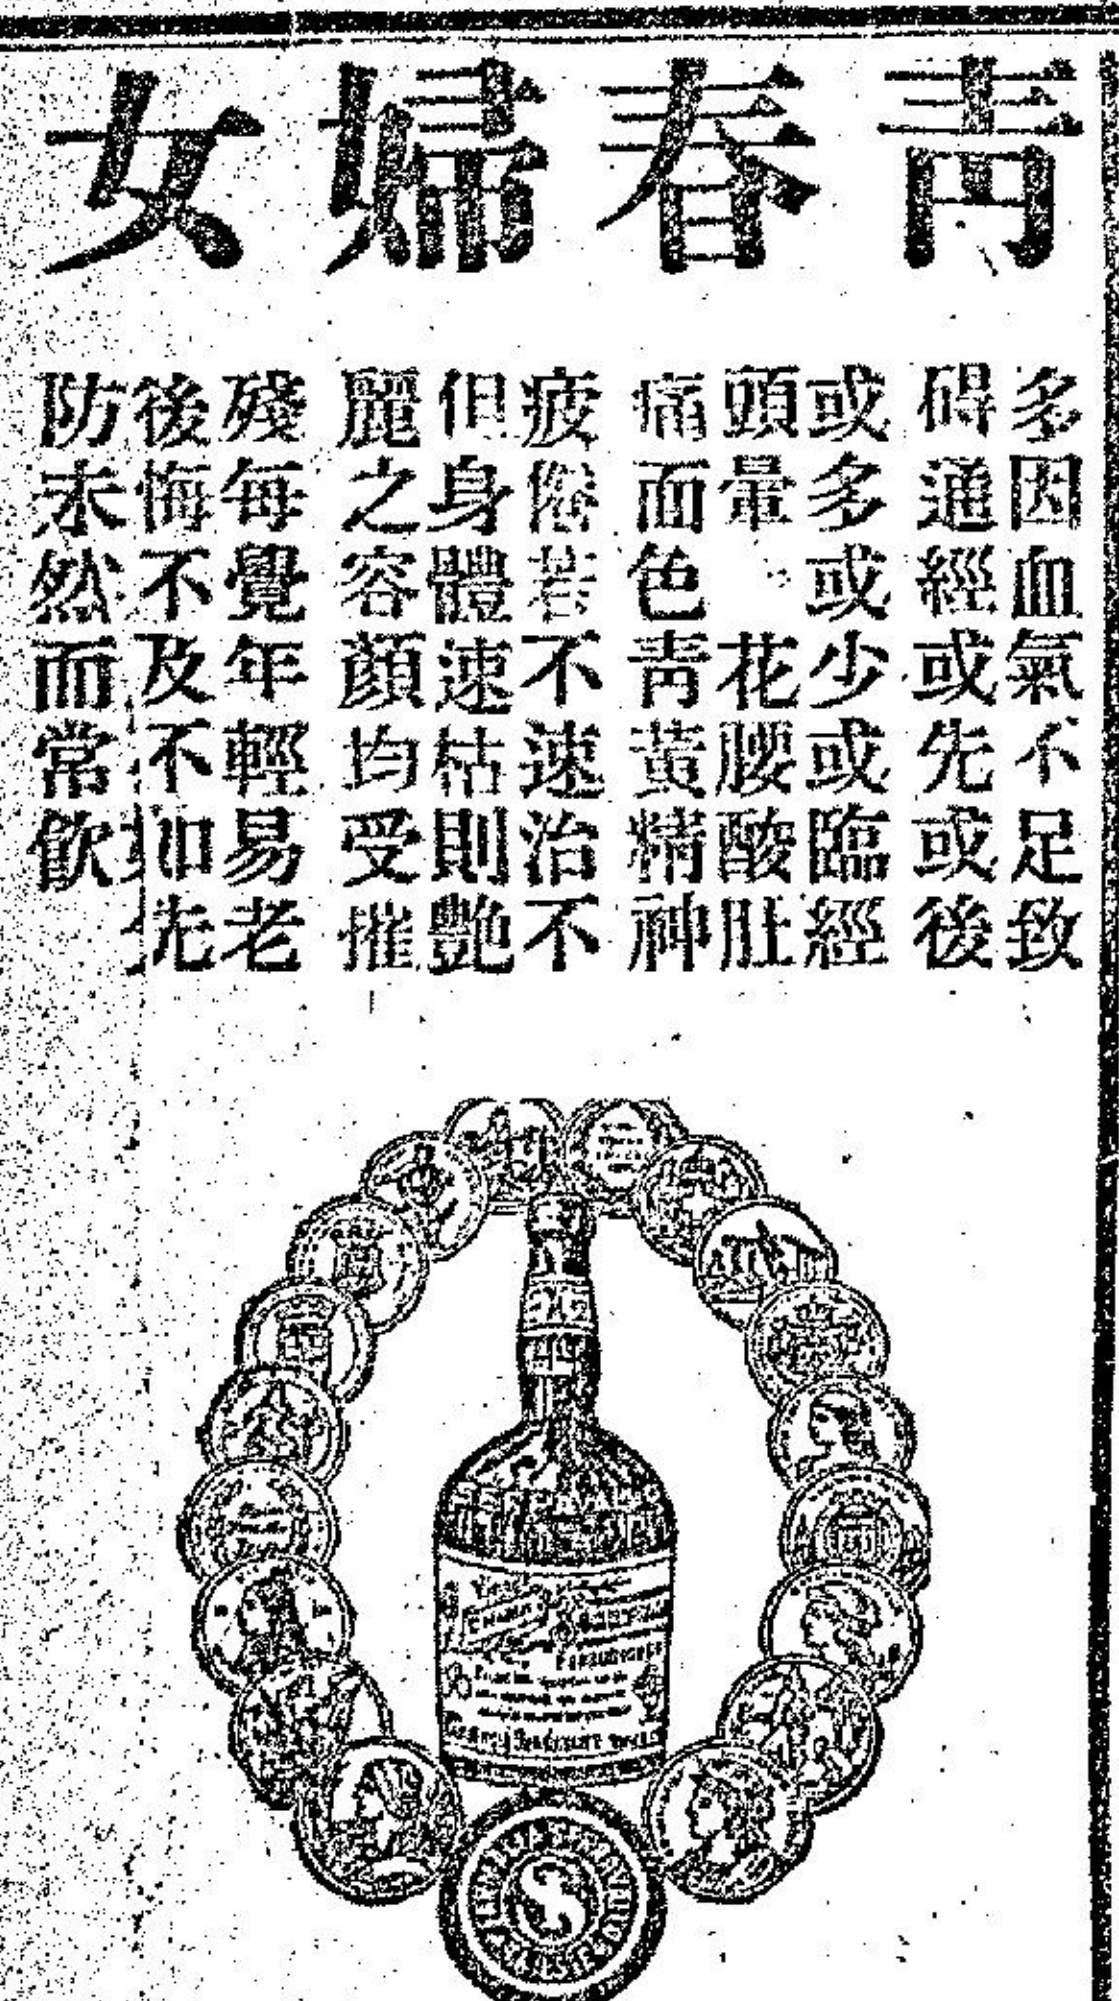 青春婦女
多因血氣不足致
碍通經或先或後
或多或少或臨經
頭暈 花腰酸肚
痛面色青黃精神
疲倦若不速治不
但身體速枯則艶
麗之容顏均受摧
殘每覺年輕易老
後悔不及不如先
防未然而常飲